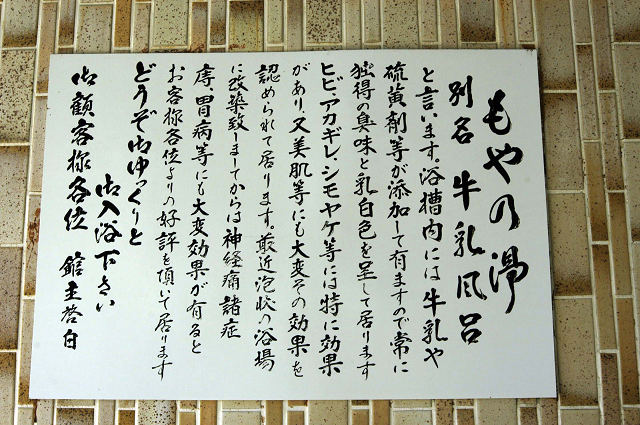 もやの湯
別名 牛乳風呂
と言います。浴槽内には牛乳や
硫黄剤等が添加して有ますので常に
独得の臭味と乳白色を呈して居ります
ヒビ、アカギレ、シモヤケ等には特に効果
があり、又美肌等にも大変その効果を
認められて居ります。最近泡状の浴場
に改築致しましてからは神経痛諸症
痔、胃病等にも大変効果が有ると
お客様各位よりの好評を頂いて居ります
どうぞ御ゆっくりと
御入浴下さい
御顧客様各位 館主啓白